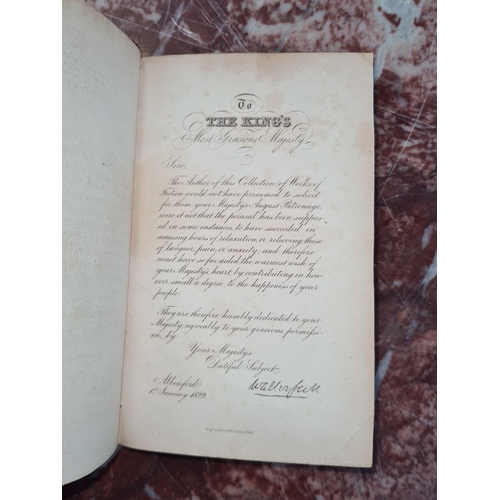 To
THE KING'S
Most Gracious Majesty
Sire,
The Author of this Collection of Works of
Fiction would not have presumed to solicit
for them your Majesty's August Patronage,
were it not that the perusal has been suppos-
ed in some instances, to have succeeded in
amusing hours of relaxation, or relieving those
of languor, pain, or anxiety, and therefore
must have so far aided the warmest wish of
your Majesty's heart, by contributing in how
ever small a degree to the happiness of your
people.
They are therefore humbly dedicated to your
Majesty, agreeably to your gracious permiss-
ion, by
Your Majesty's
Dutiful Subject
Abbotsford
1st January 1829.
Walter Scott